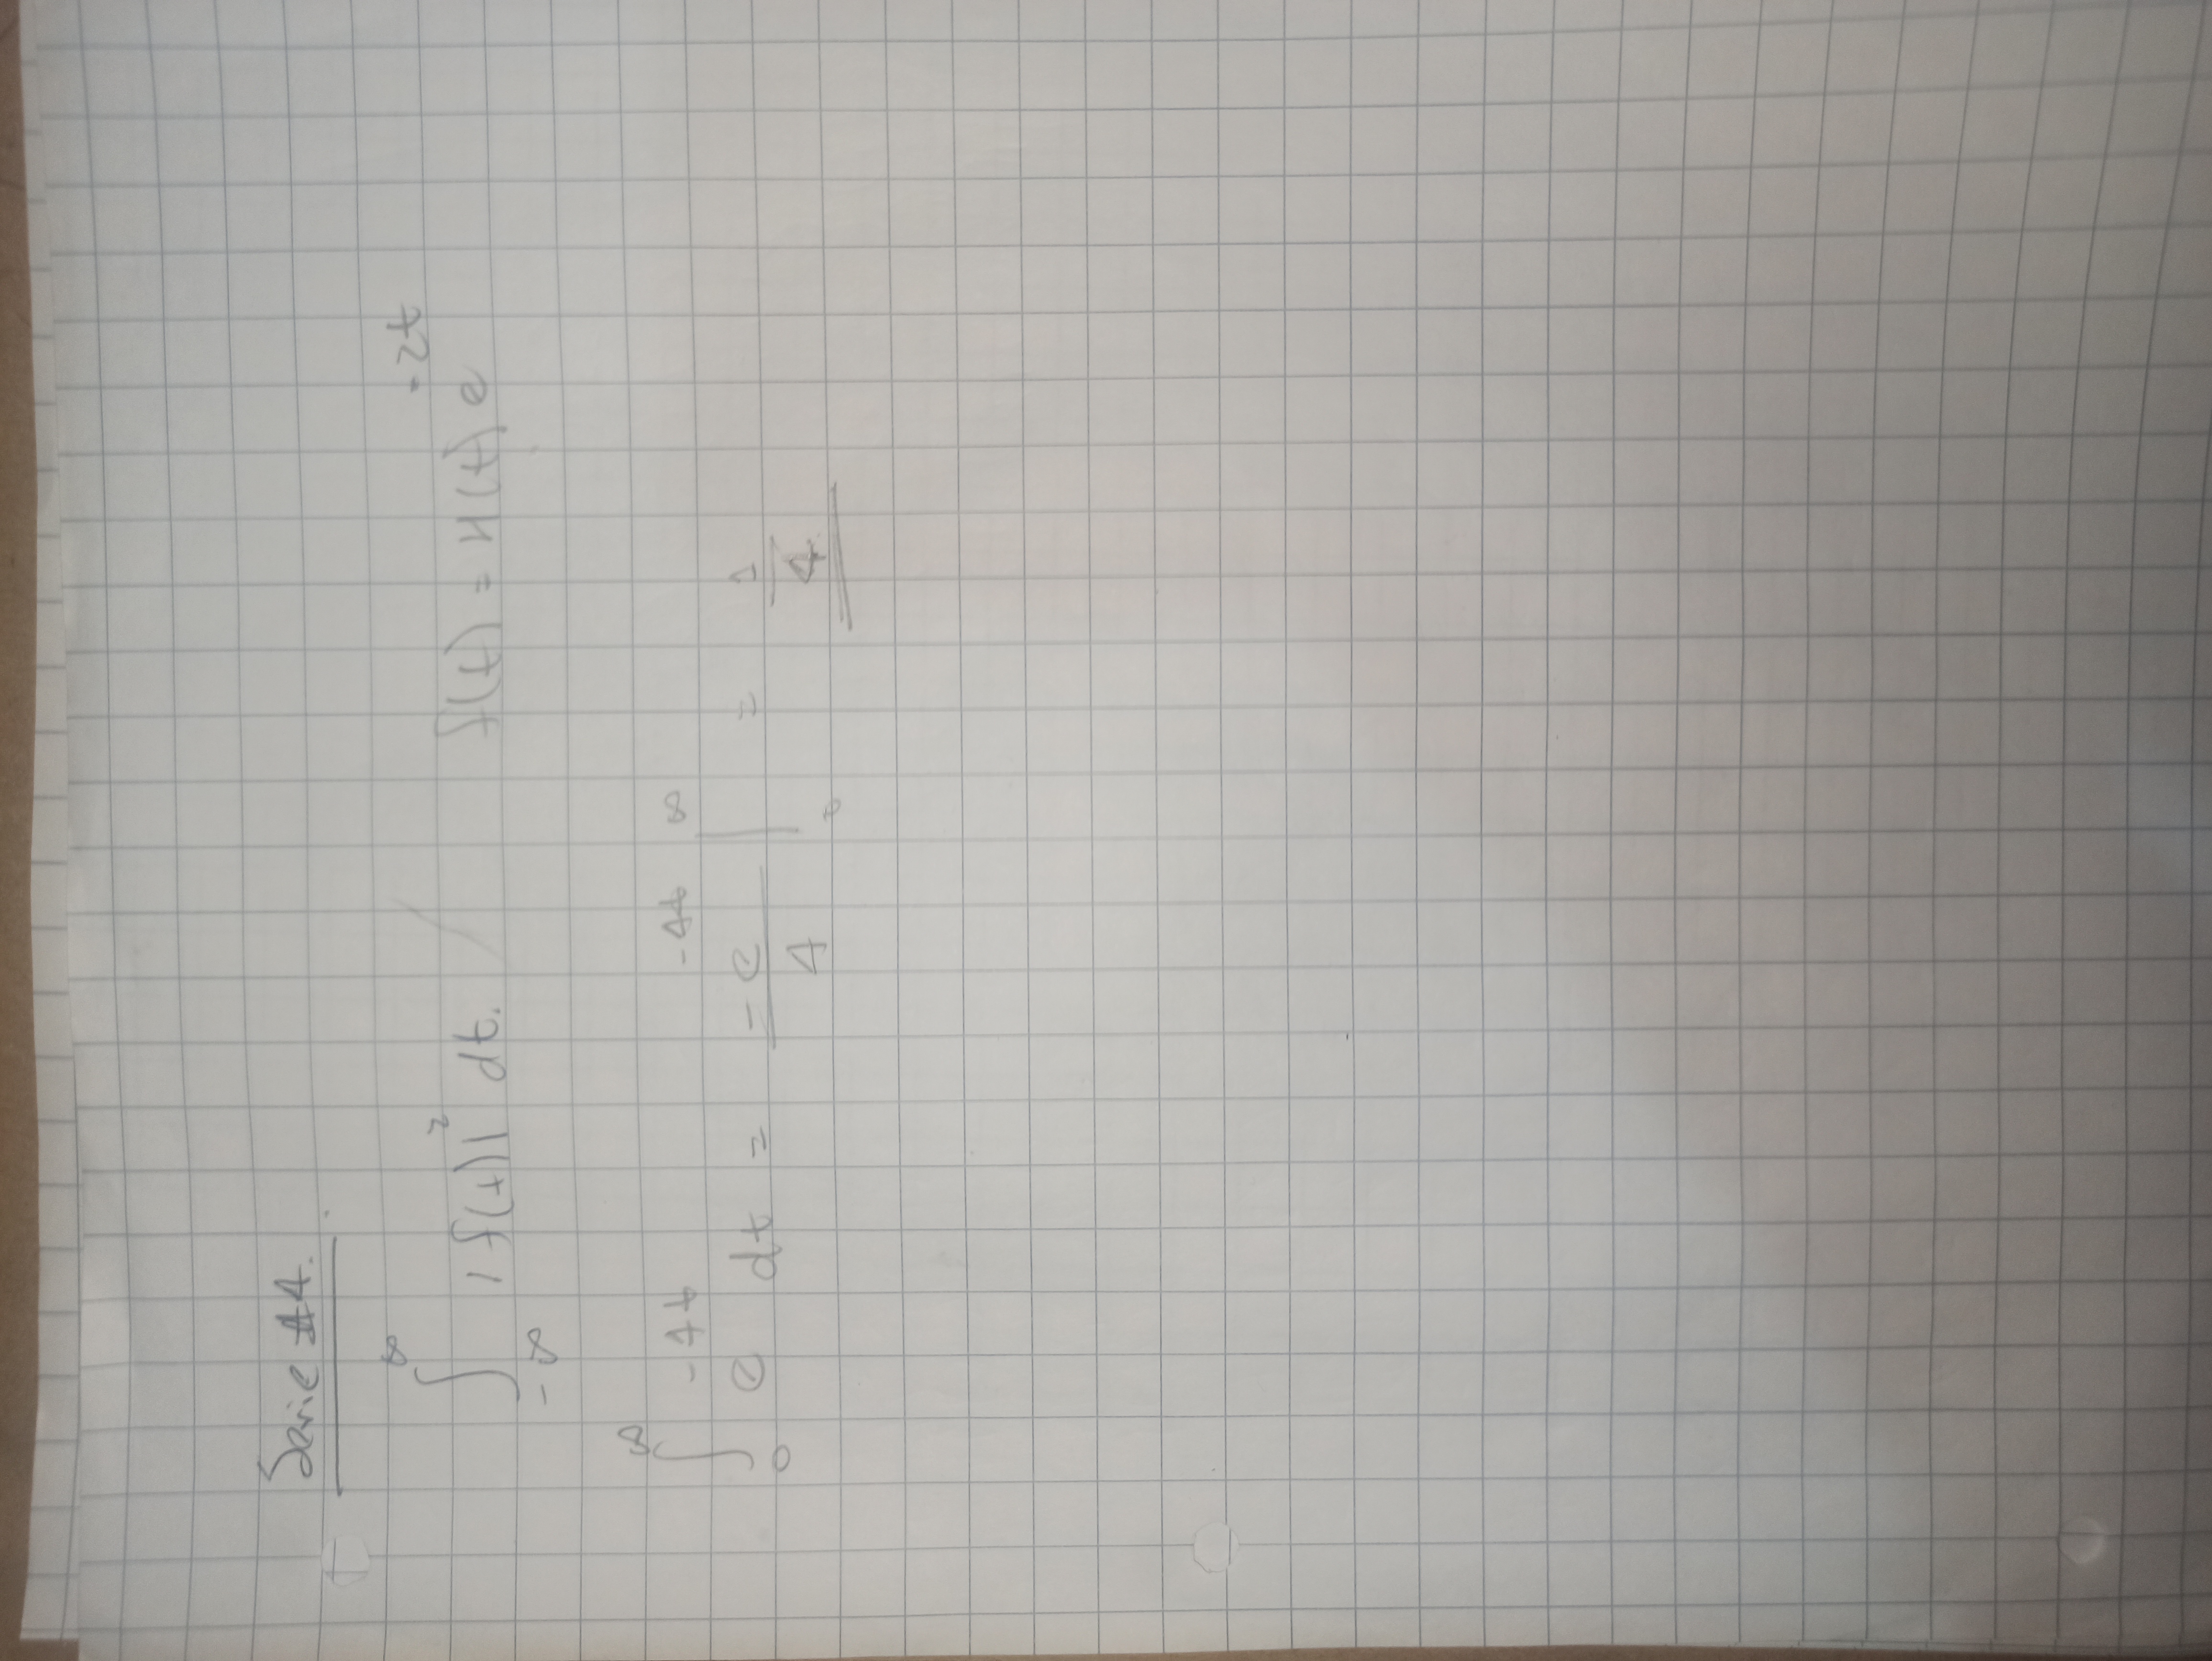 Serie #4.
∫_{-∞}^{∞} |f(t)|² dt. / f(t) = H(t) e^{-2t}
∫_0^∞ e^{-4t} dt = -e^{-4t}/4 |_0^∞ = 1/4